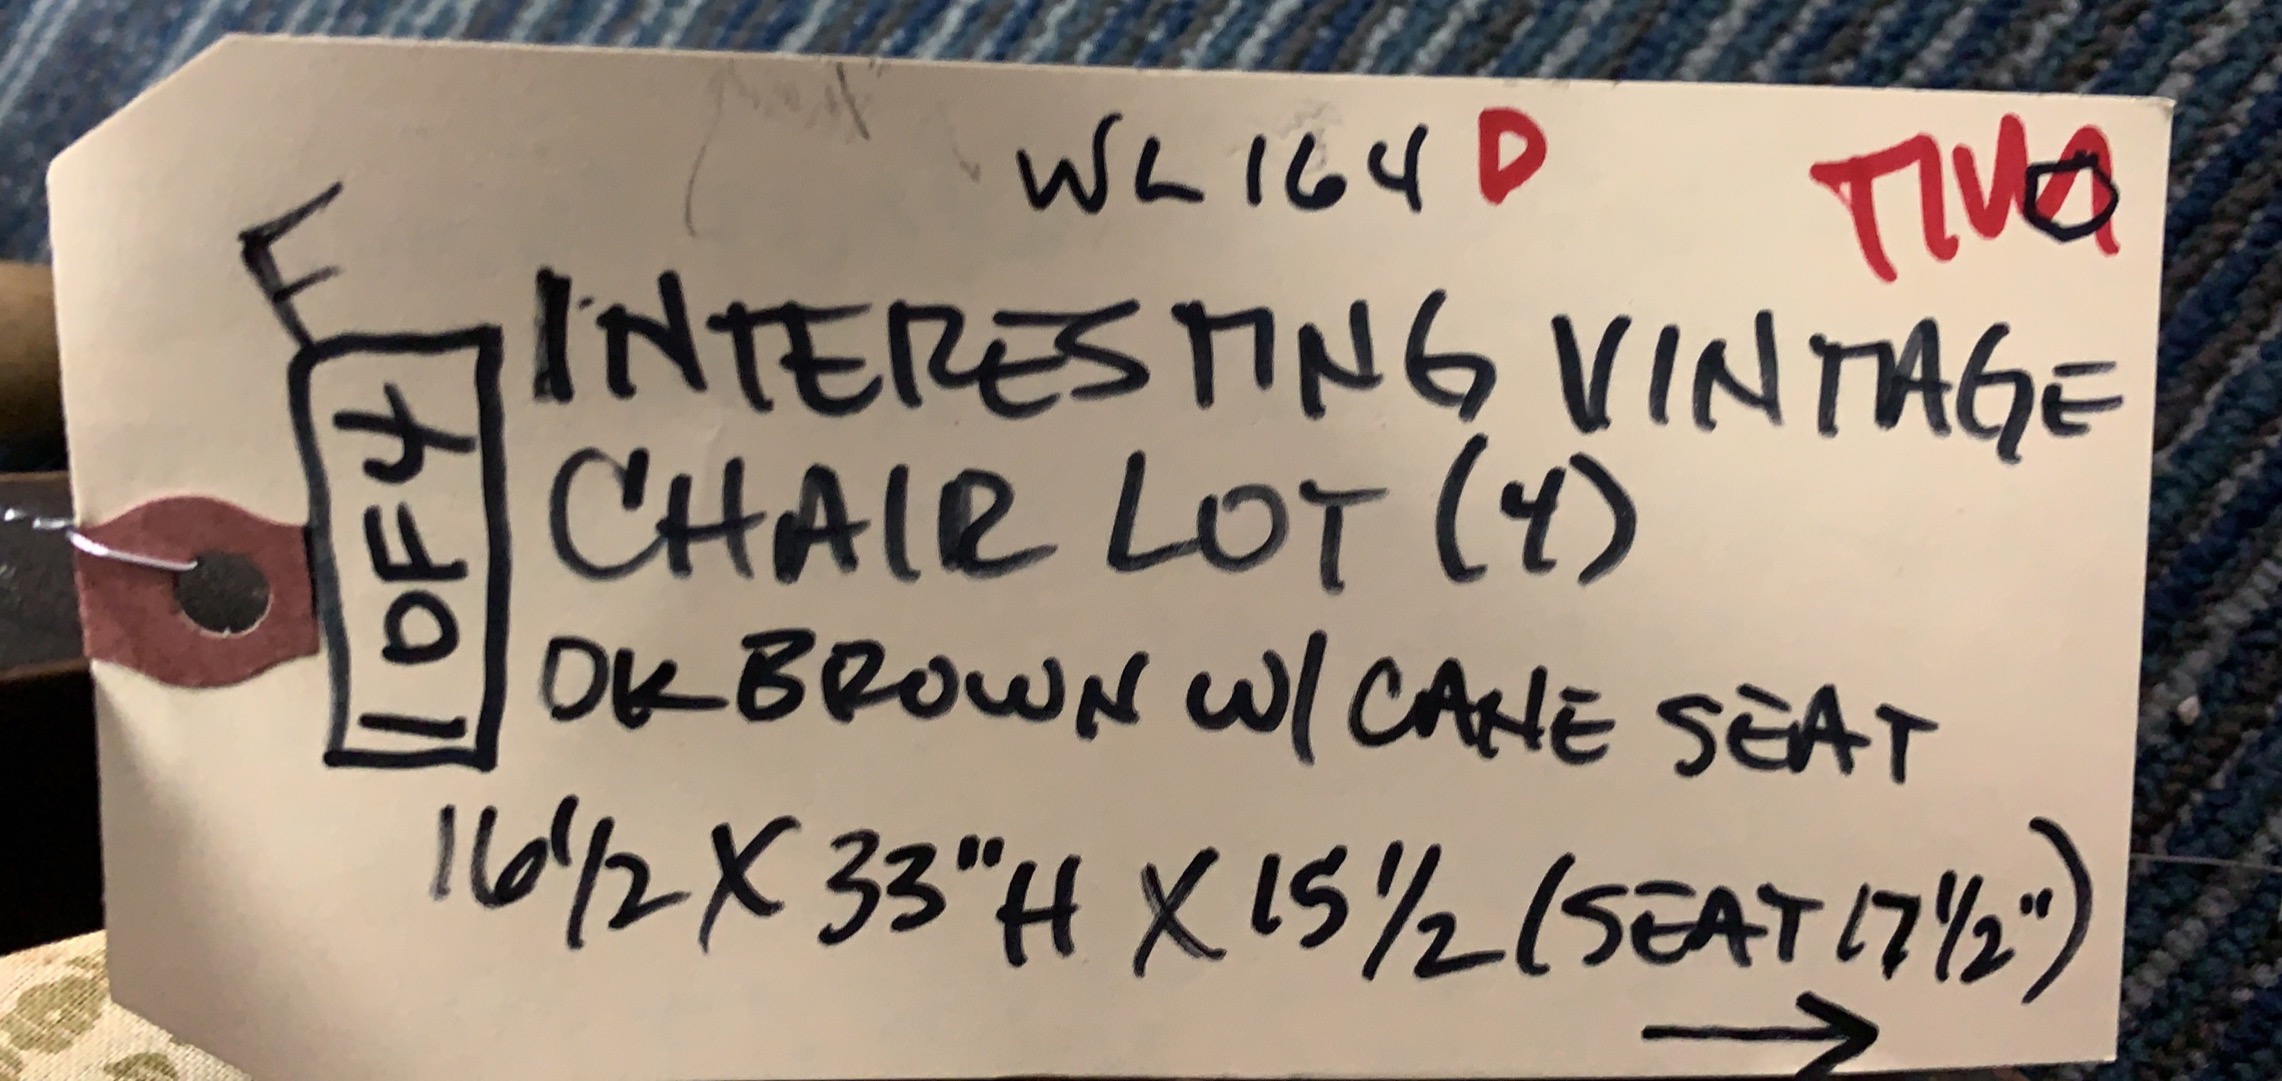 WL 164 D
INTERESTING VINTAGE
CHAIR LOT (4)
DK BROWN W/ CANE SEAT
16 1/2 X 33" H X 15 1/2 (SEAT 17 1/2")
→
1 OF 4
F